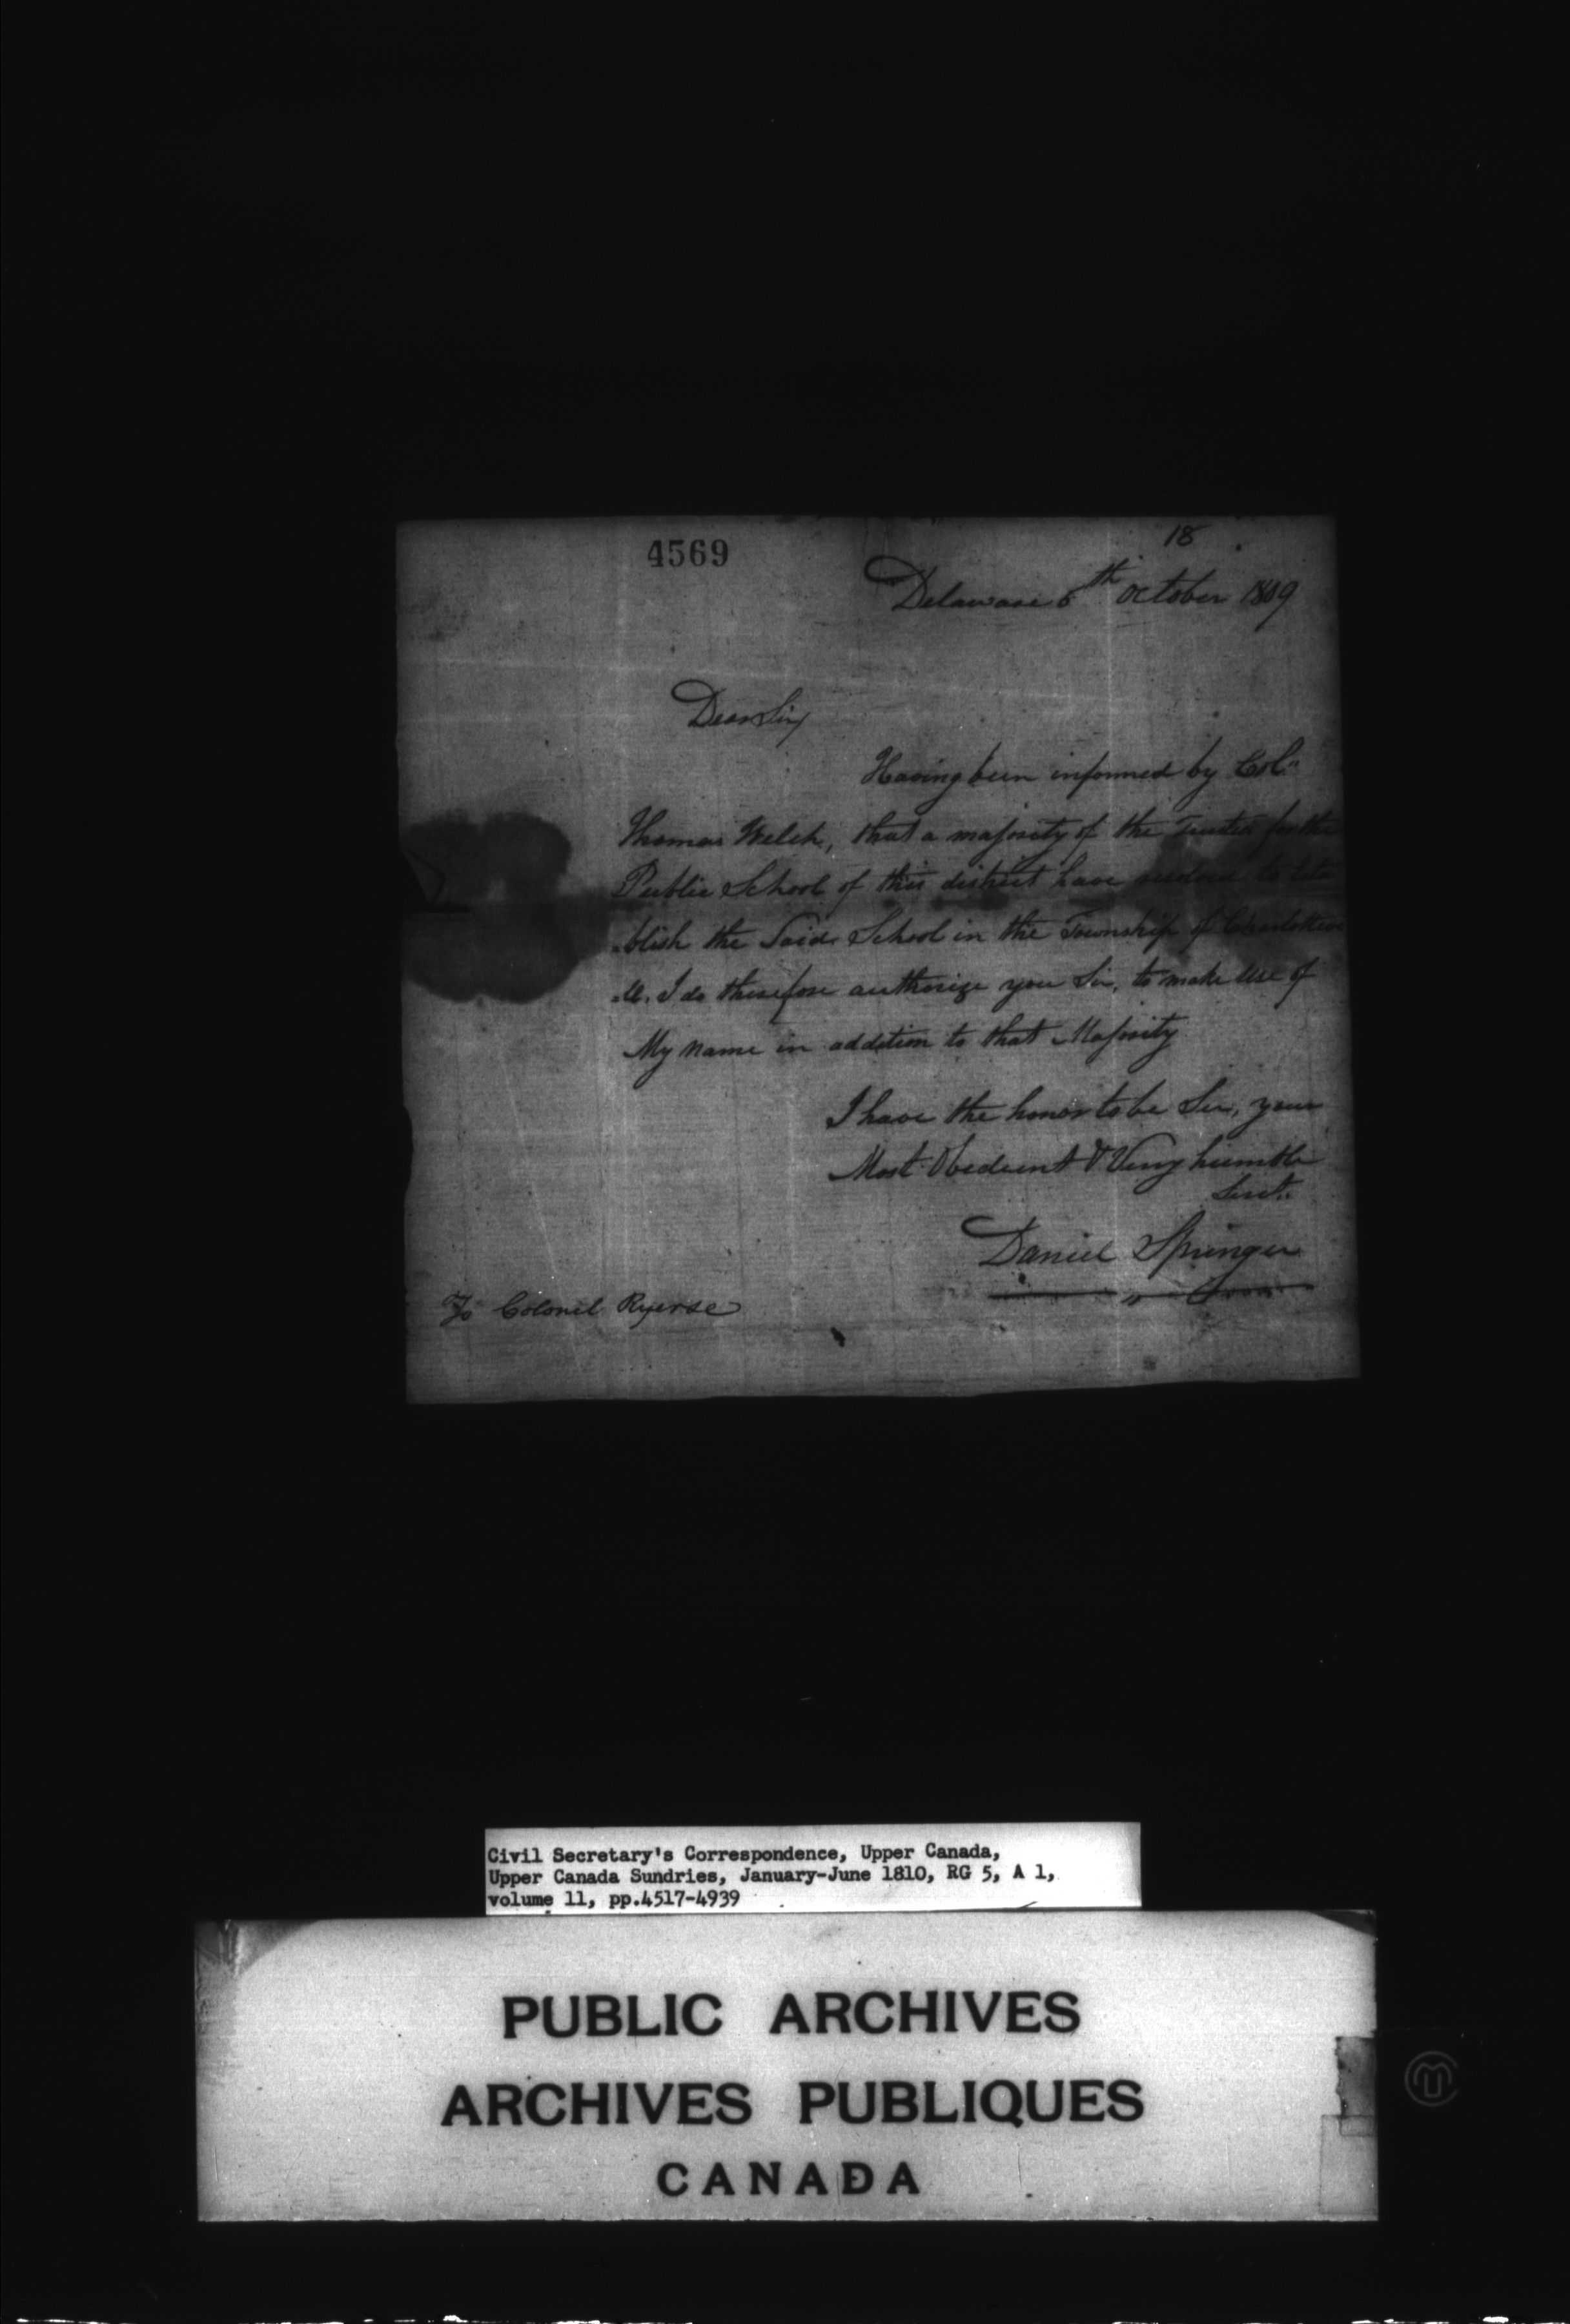 18
4569
Delaware 6th October 1809
Dear Sir,
Having been informed by Coln
Thomas Welch, that a majority of the Trustees for the
Public School of this district have resolved to Esta
-blish the Said School in the Township of Charlottevi
-ll. I do therefore authorize you Sir, to make Use of
My Name in addition to that Majority
I have the honor to be Sir, your
Most Obedient & Very humble
Servt.
Daniel Springer
To Colonel Ryerse
Civil Secretary's Correspondence, Upper Canada,
Upper Canada Sundries, January-June 1810, RG 5, A 1,
volume 11, pp.4517-4939
PUBLIC ARCHIVES
ARCHIVES PUBLIQUES
CANADA